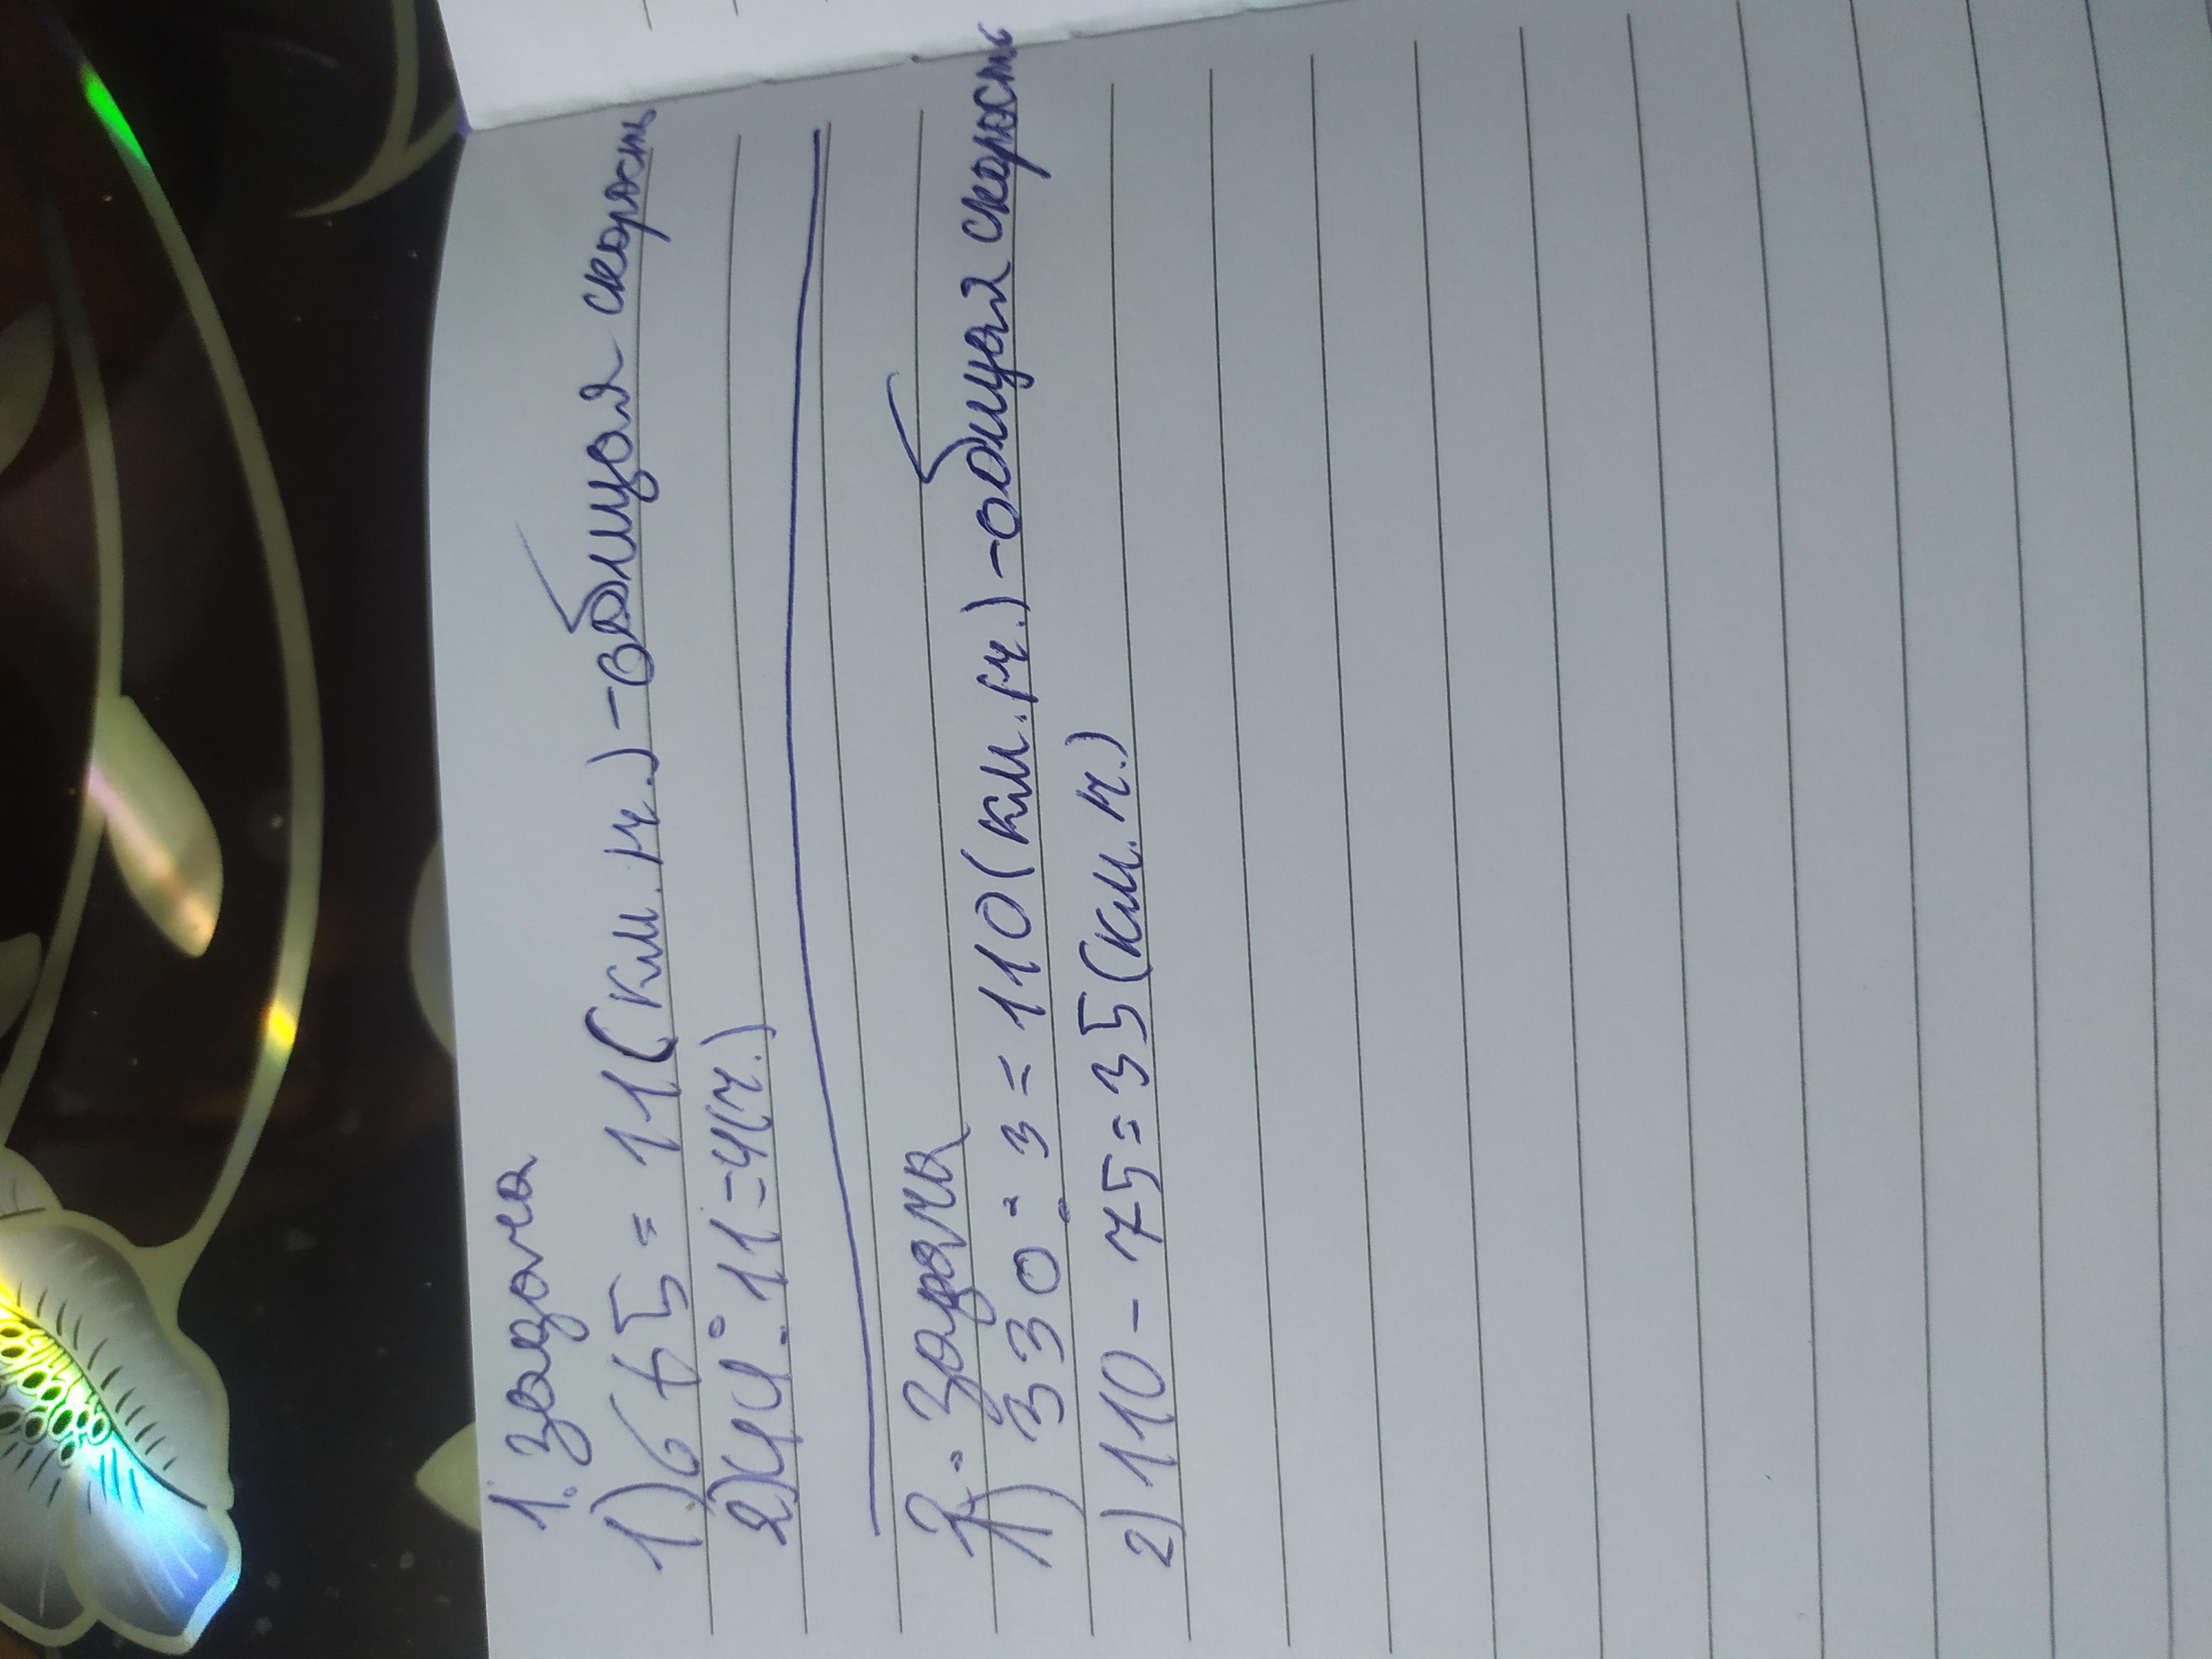 1. задача
1) 6+5=11(км./ч.)-общая скорость
2) 44:11=4(ч.)
2. задача
1) 330:3=110(км./ч.)-общая скорость
2) 110-75=35(км./ч.)